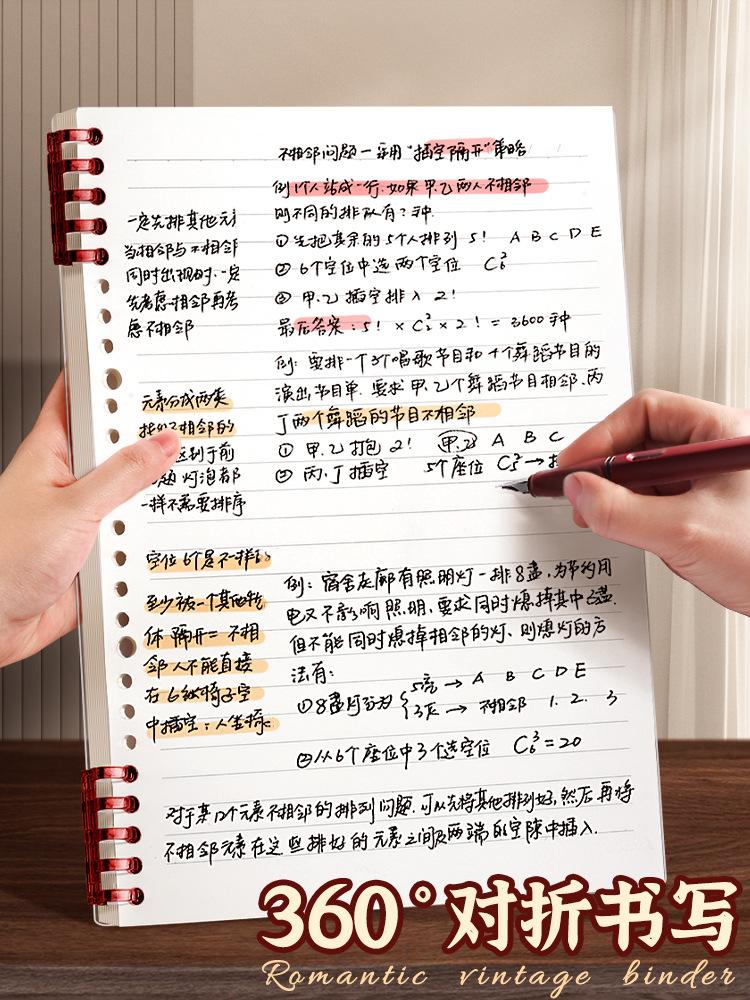 不相邻问题一采用"插空隔开"策略
例 1个人站成一行.如果甲.乙两人不相邻
则不同的排队有?种.
①先把其余的5个人排列 5! A B C D E
②6个空位中选两个空位
③甲.乙插空排入 2!
最后答案: = 3600种
例: 要排一个 个唱歌节目和 个舞蹈节目的
演出节目单.要求甲.乙 个舞蹈节目相邻.丙
丁两个舞蹈的节目不相邻
①甲.乙打包 2! 甲.乙 A B C
②丙.丁插空 5个座位
一定先排其他元
当相邻与不相邻
同时出现时.一定
先考虑相邻再考
虑不相邻
元素分成两类
相邻的
区别于前
题 灯泡都
一样不需要排序
空位6个是不一样
至少被一个其他
体 隔开= 不相
邻 人不能直接
在6 椅子空
中插空:人坐椅
例: 宿舍走廊有照明灯一排8盏,为节约用
电又不影响照明,要求同时熄掉其中 盏.
但不能同时熄掉相邻的灯、则熄灯的方
法有:
①8盏灯分为 5亮→ A B C D E
3灭→ 不相邻 1. 2. 3
②从6个座位中3个选空位 C₆³=20
对于某 个元素不相邻的排列问题.可以先将其他排列好,然后再将
不相邻元素在这些排好的元素之间及两端的空隙中插入.
360°对折书写
Romantic vintage binder